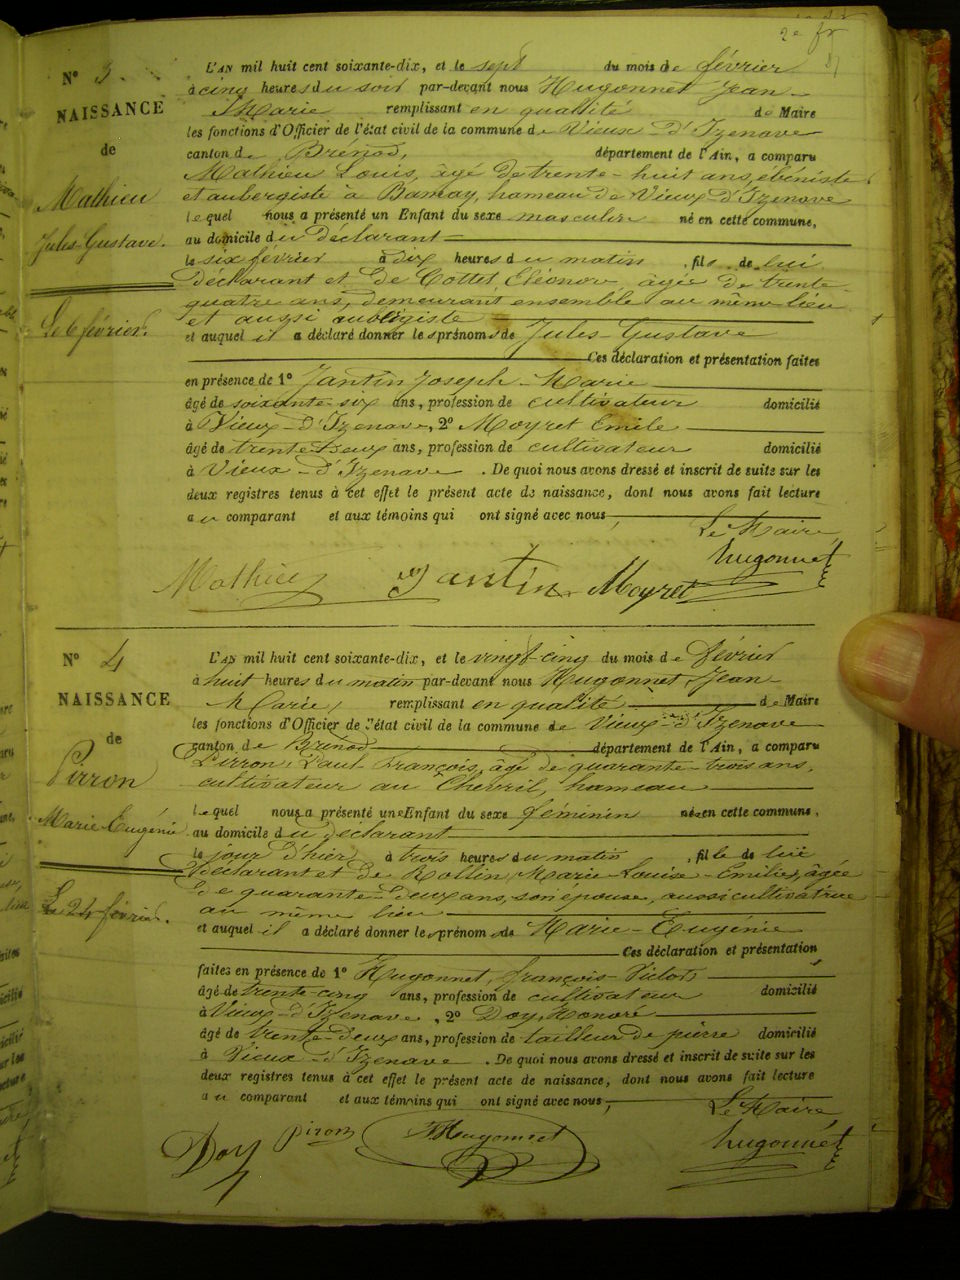 2e fr
N° 3.
NAISSANCE
de
Mathieu
Jules-Gustave.
Le 6 février.
L'AN mil huit cent soixante-dix, et le sept du mois de février
à cinq heures du soir par-devant nous Hugonnet Jean-
Marie remplissant en quallité de Maire
les fonctions d'Officier de l'état civil de la commune de Vieux-d'Izenave
canton de Brénod, département de l'Ain, a comparu
Mathieu Louis, âgé de trente-huit ans, ébéniste
et aubergiste à , hameau de Vieux-d'Izenave
lequel nous a présenté un Enfant du sexe masculin né en cette commune,
au domicile du Déclarant
le six février à dix heures du matin, fils de lui
Déclarant et de Cottet Eléonor, âgée de trente-
quatre ans, demeurant ensemble au même lieu
et aussi aubergiste
et auquel il a déclaré donner les prénoms de Jules-Gustave
Ces déclaration et présentation faites
en présence de 1° Jantin Joseph-Marie
âgé de soixante-six ans, profession de cultivateur domicilié
à Vieux-d'Izenave, 2° Moyret Emile
âgé de trente-deux ans, profession de cultivateur domicilié
à Vieux-d'Izenave. De quoi nous avons dressé et inscrit de suite sur les
deux registres tenus à cet effet le présent acte de naissance, dont nous avons fait lecture
au comparant et aux témoins qui ont signé avec nous,
Le Maire
Mathieu Jantin Moyret hugonnet
N° 4
NAISSANCE
de
Pirron
Marie Eugénie.
Le 24 février.
L'AN mil huit cent soixante-dix, et le vingt-cinq du mois de février
à huit heures du matin par-devant nous Hugonnet, Jean-
Marie, remplissant en qualité de Maire
les fonctions d'Officier de l'état civil de la commune de Vieux-d'Izenave
canton de Brénod département de l'Ain, a comparu
Pirron, Paul François, âgé de quarante-trois ans,
cultivateur au Chevril, hameau
lequel nous a présenté un Enfant du sexe féminin née en cette commune,
au domicile du déclarant
le jour d'hier, à trois heures du matin, fille de lui
Déclarant et de Rollin, Marie-Louise-Emilie, âgée
de quarante-deux ans, son épouse, aussi cultivatrice
au même lieu
et auquel il a déclaré donner les prénoms de Marie-Eugénie
Ces déclaration et présentation
faites en présence de 1° Hugonnet, françois-Victor,
âgé de trente-cinq ans, profession de cultivateur domicilié
à Vieux-d'Izenave, 2° Doy, Honoré
âgé de trente-deux ans, profession de tailleur de pierre domicilié
à Vieux-d'Izenave. De quoi nous avons dressé et inscrit de suite sur les
deux registres tenus à cet effet le présent acte de naissance, dont nous avons fait lecture
au comparant et aux témoins qui ont signé avec nous,
Le Maire
Doy piron Hugonnet hugonnet